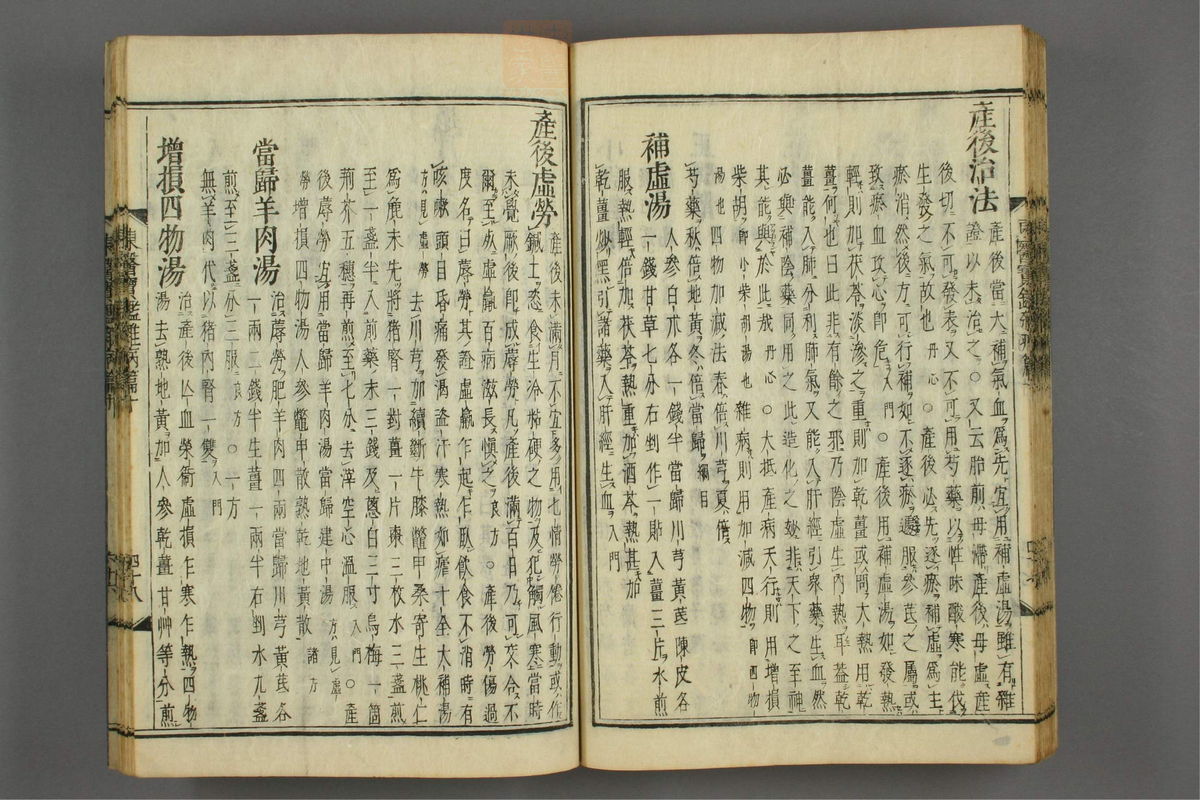 產後治法
產後當大補氣血爲先宜用補虛湯雖有雜
證以末治之○又云胎前母滯產後母虛產
後切不可發表又不可用芍藥以性味酸寒能伐
生發之氣故也丹心○產後必先逐瘀補虛爲主
瘀消然後方可行補如不逐瘀遽服參芪之屬或
致瘀血攻心卽危入門○產後用補虛湯如發熱
輕則加茯苓淡滲之重則加乾薑或問大熱用乾
薑何也曰此非有餘之邪乃陰虛生內熱耳蓋乾
薑能入肺分利肺氣又能入肝經引衆藥生血然
必與補陰藥同用之此造化之妙非天下之至神
其能與於此哉丹心○大抵產病天行則用增損
柴胡卽小柴胡湯也雜病則用加減四物卽四物
湯也四物加減法春倍川芎夏倍
芍藥秋倍地黃冬倍當歸綱目
補虛湯
人參白朮各一錢半當歸川芎黃芪陳皮各
一錢甘草七分右剉作一貼入薑三片水煎
服熱輕倍加茯苓熱重加酒芩熱甚加
乾薑炒黑引諸藥入肝經生血入門
產後虛勞
產後未滿月不宜多用七情勞倦行動或作
鍼工恣食生冷粘硬之物及犯觸風寒當時
未覺厥後卽成蓐勞凡產後滿百日乃可交合不
爾至死虛羸百病滋長愼之良方○產後勞傷過
度名曰蓐勞其證虛羸乍起乍臥飮食不消時有
咳嗽頭目昏痛發渴盜汗寒熱如瘧十全大補湯
方見虛勞去川芎加續斷牛膝鱉甲桑寄生桃仁
爲麁末先將猪腎一對薑一片棗三枚水三盞煎
至一盞半入前藥末三錢及葱白三寸烏梅一箇
荊芥五穗再煎至七分去滓空心溫服入門○產
後蓐勞宜用當歸羊肉湯當歸建中湯方見虛
勞增損四物湯人參鱉甲散熟乾地黃散諸方
當歸羊肉湯
治蓐勞肥羊肉四兩當歸川芎黃芪各
一兩二錢半生薑一兩半右剉水九盞
煎至三盞分三服良方○一方
無羊肉代以猪內腎一雙入門
增損四物湯
治產後亡血榮衞虛損乍寒乍熱四物
湯去熟地黃加人參乾薑甘艸等分煎
東醫寶鑑雜病篇十
四十八